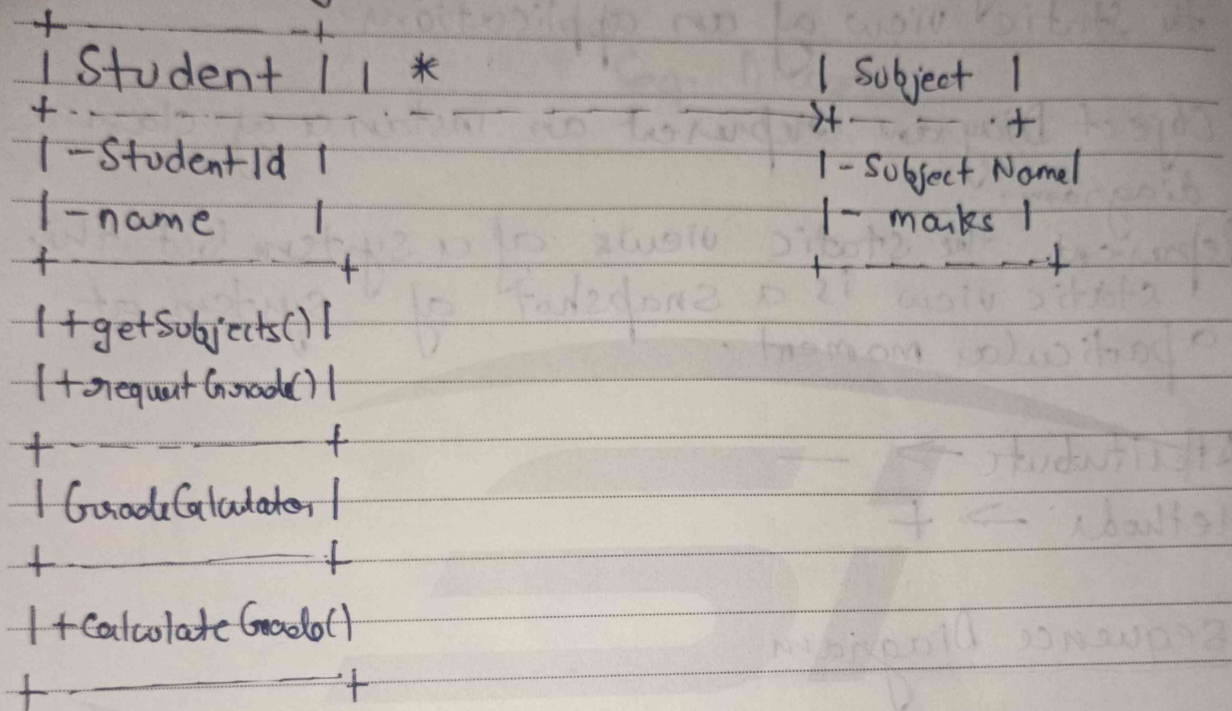 + - - - - +
| Student | 1 * | Subject |
+ - - - - - - - - - - - - -> + - - - +
| - StudentId | | - Subject Name |
| - name | | - marks |
+ - - - - + + - - - - +
| + getSubjects() |
| + request Grade() |
+ - - - - +
| GradeCalculator |
+ - - - - +
| + Calculate Grade()
+ - - - - +